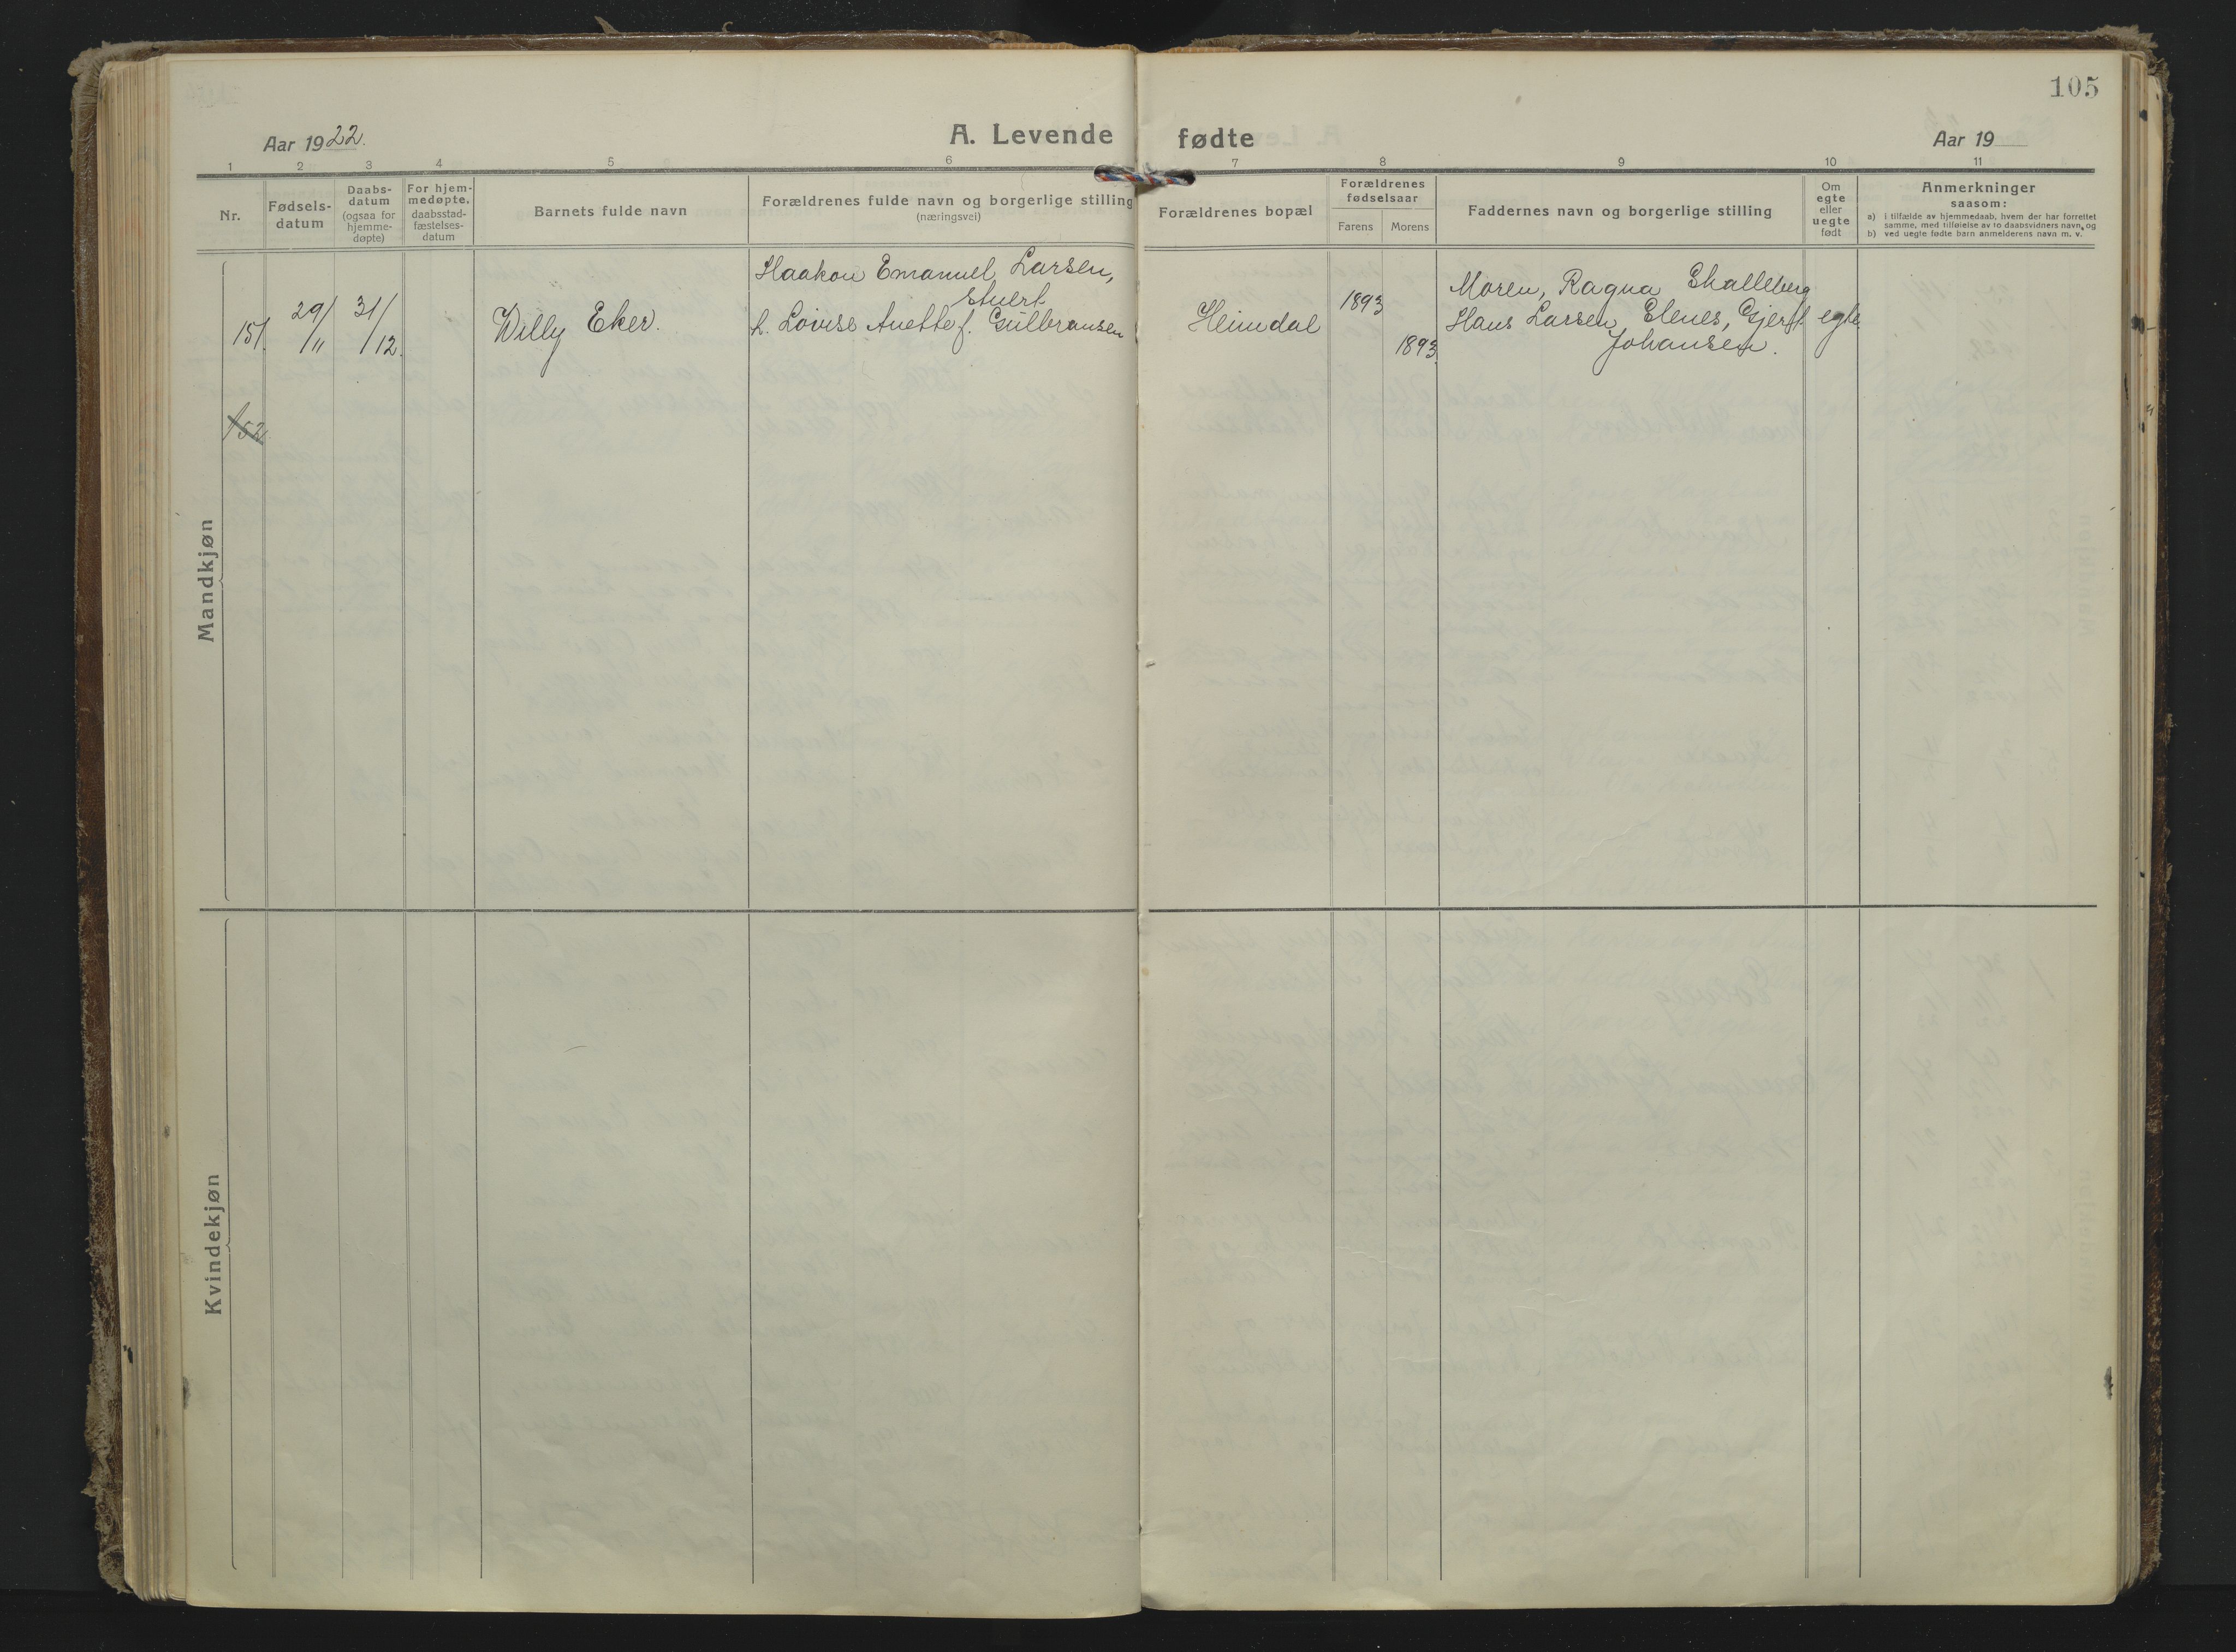 105
Aar 1922.
A. Levende fødte
Aar 19
1 2 3 4 5 6 7 8 9 10 11
Nr.
Fødsels-
datum
Daabs-
datum
(ogsaa for
hjemme-
døpte)
For hjem-
medøpte.
daabsstad-
fæstelses-
datum
Barnets fulde navn
Forældrenes fulde navn og borgerlige stilling
(næringsvei)
Forældrenes bopæl
Forældrenes
fødselsaar
Farens Morens
Faddernes navn og borgerlige stilling
Om
egte
eller
uegte
født
Anmerkninger
saasom:
a) i tilfælde av hjemmedaab, hvem der har forrettet
samme, med tilføielse av to daabsvidners navn, og
b) ved uegte fødte barn anmelderens navn m. v.
Mandkjøn
151.
29/11
31/12.
Willy Eker.
Haakon Emanuel Larsen,
Stuert
h. Lovise Anette f. Gulbransen
Heimdal
1893
1893
Moren, Ragna Skalleberg
Hans Larsen, Elenes, Gjert
Johansen.
egte
152
Kvindekjøn